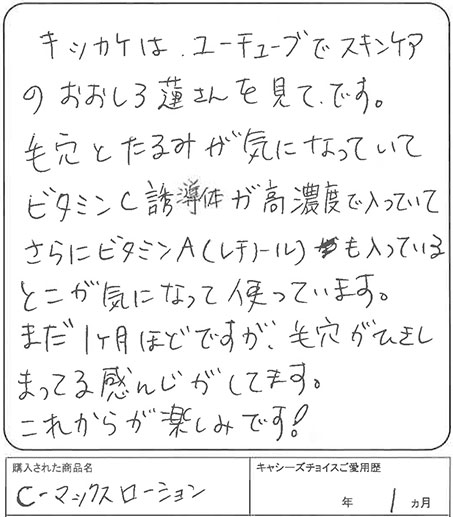 キッカケは、ユーチューブでスキンケア
のおおしろ蓮さんを見て、です。
毛穴とたるみが気になっていて
ビタミンC誘導体が高濃度で入っていて
さらにビタミンA(レチノール)も入っている
とこが気になって使っています。
まだ1ヶ月ほどですが、毛穴がひきし
まってる感んじがしてます。
これからが楽しみです!
購入された商品名
C-マックスローション
キャシーズチョイスご愛用歴
年 1 ヵ月